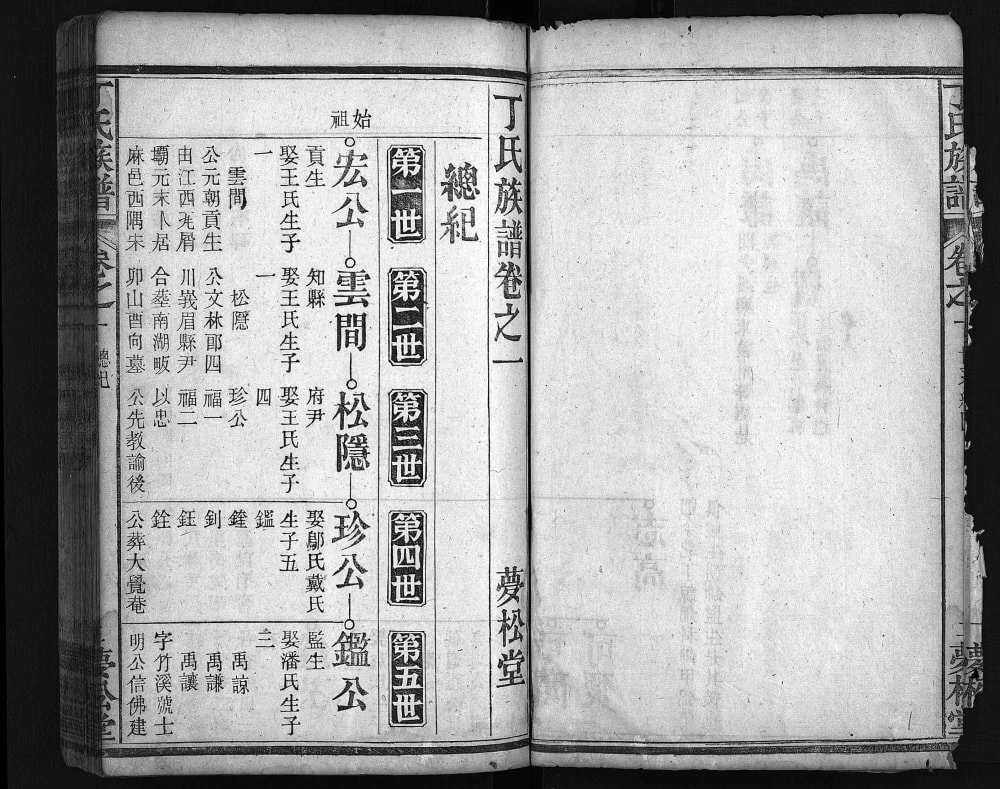 丁氏族譜卷之一 夢松堂
總紀
第一世 第二世 第三世 第四世 第五世
始祖
宏公 雲間 松隱 珍公 鑑公
貢生
娶王氏生子
一
雲間
公元朝貢生
由江西
壩元末卜居
麻邑西隅宋
知縣
娶王氏生子
一
松隱
公文林郎四
川峩眉縣尹
合葬南湖畈
卯山酉向墓
府尹
娶王氏生子
四
珍公
福一
福二
以忠
公先教諭後
娶鄔氏戴氏
生子五
鑑
鏟
釗
鈺
銓
公葬大覺菴
監生
娶潘氏生子
三
禹諒
禹謙
禹讓
字竹溪號士
明公信佛建
丁氏族譜 卷之一 總紀
丁氏族譜 卷之